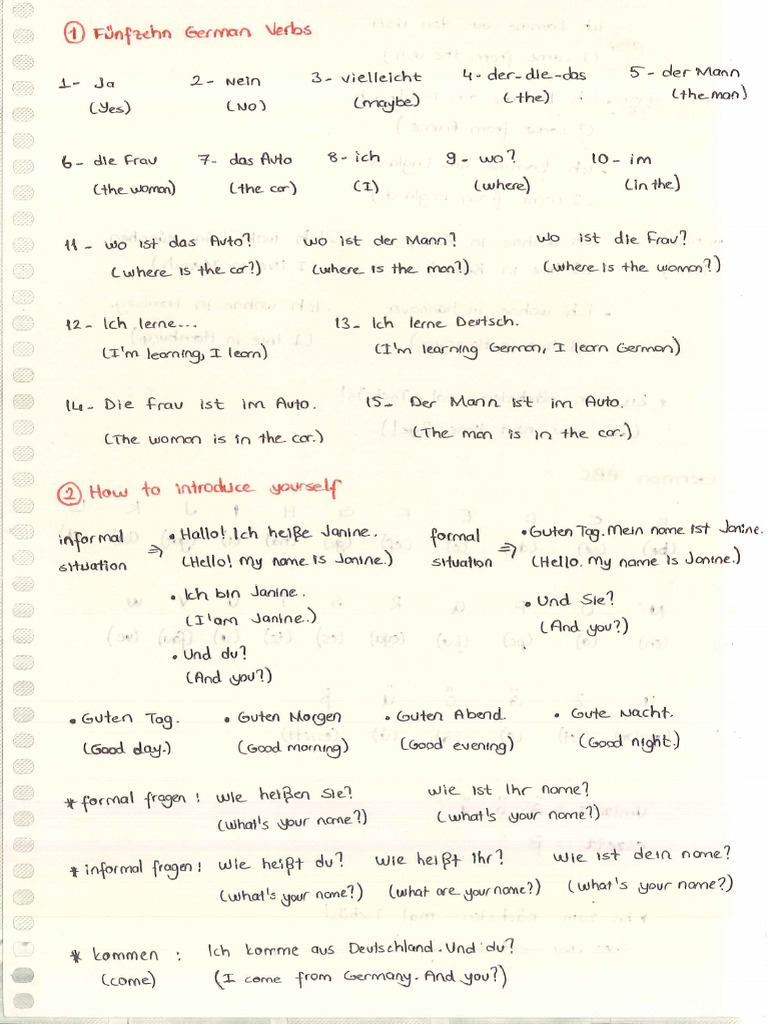 ① Fünfzehn German Verbs
1- Ja 2- Nein 3- vielleicht 4- der-die-das 5- der Mann
(Yes) (No) (maybe) (the) (the man)
6- die Frau 7- das Auto 8- ich 9- wo? 10- im
(the woman) (the car) (I) (where) (in the)
11- wo ist das Auto? wo ist der Mann? wo ist die Frau?
(where is the car?) (where is the man?) (where is the woman?)
12- Ich lerne... 13- Ich lerne Deutsch.
(I'm learning, I learn) (I'm learning German, I learn German)
14- Die frau ist im Auto. 15- Der Mann ist im Auto.
(The woman is in the car.) (The man is in the car.)
② How to introduce yourself
informal situation ⇒ • Hallo! Ich heiße Janine. formal situation ⇒ • Guten Tag. Mein name ist Janine.
(Hello! My name is Janine.) (Hello. My name is Janine.)
• Ich bin Janine. • Und Sie?
(I'am Janine.) (And you?)
• Und du?
(And you?)
• Guten Tag. • Guten Morgen • Guten Abend. • Gute Nacht.
(Good day.) (Good morning) (Good evening) (Good night.)
* formal fragen : wie heißen Sie? wie ist Ihr name?
(what's your name?) (what's your name?)
* informal fragen : wie heißt du? wie heißt Ihr? wie ist dein name?
(what's your name?) (what are your name?) (what's your name?)
* kommen : Ich komme aus Deutschland. Und du?
(come) (I come from Germany. And you?)